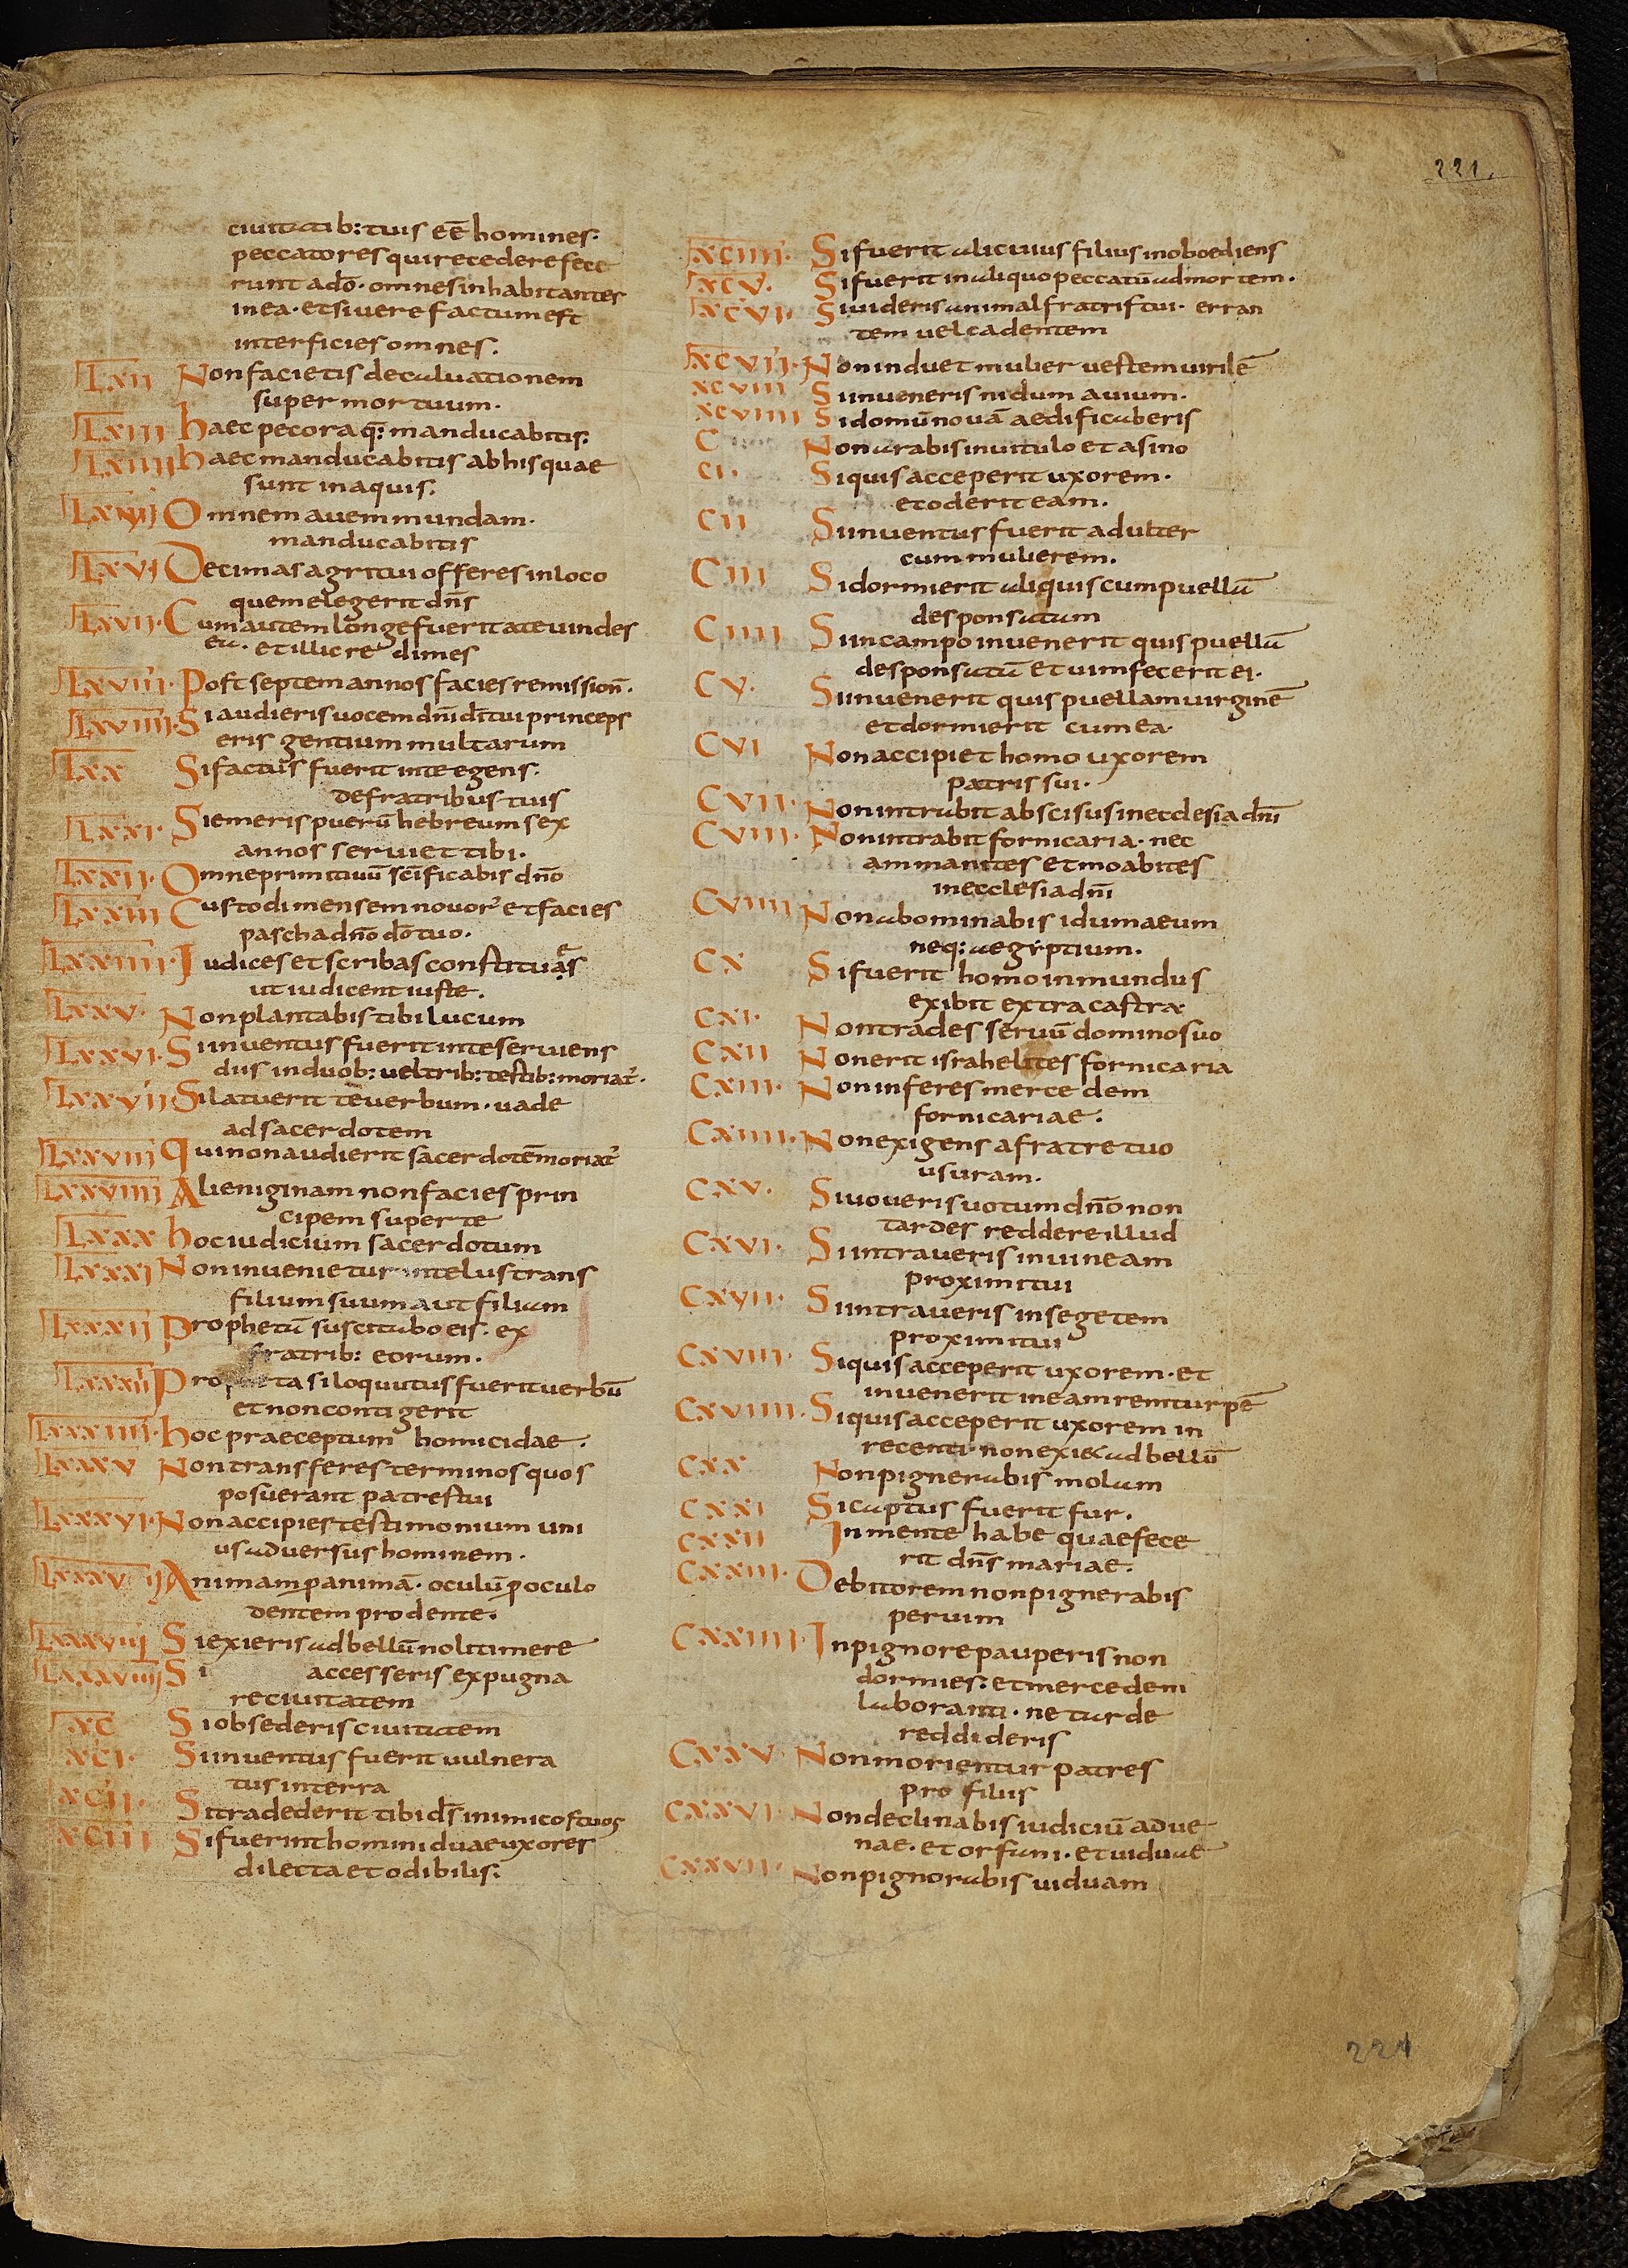 221.
ciuitatib: tuis eē homines.
peccatores qui recedere fece
runt a dō. omnes inhabitantes
in ea. et si uere factum est
interficies omnes.
LXII Non facietis decaluationem
super mortuum.
LXIII haec pecora q: manducabitis.
LXIIII haec manducabitis ab his quae
sunt in aquis.
LXV Omnem auem mundam.
manducabitis
LXVI Decimas agri tui offeres in loco
quem elegerit dn̄s
LXVII. Cum autem longe fuerit a te uindes
ea. et illic redimes
LXVIII. Post septem annos facies remission̄.
LXVIIII. Si audieris uocem dn̄i dī tui princeps
eris gentium multarum
LXX Si factus fuerit in te egens.
de fratribus tuis
LXXI. Si emeris puerū hebreum sex
annos seruiet tibi.
LXXII. Omne primitiuū sc̄ificabis dn̄o
LXXIII Custodi mensem nouor̄ et facies
pascha dn̄o dō tuo.
LXXIIII. Iudices et scribas constituas
ut iudicent iuste.
LXXV. Non plantabis tibi lucum
LXXVI. Si inuentus fuerit in te seruiens
diis in duob: uel trib: testib: moriat̄.
LXXVII Si latuerit te uerbum. uade
ad sacerdotem
LXXVIII Qui non audierit sacerdotē moriat̄
LXXVIIII Alieniginam non facies prin
cipem super te
LXXX hoc iudicium sacerdotum
LXXXI Non inuenietur in te lustrans
filium suum aut filiam
LXXXII Prophetā suscitabo eis. ex
fratrib: eorum.
LXXXIII Propheta si loquutus fuerit uerbū
et non contigerit
LXXXIIII. hoc praeceptum homicidae.
LXXXV Non transferes terminos quos
posuerant patres tui
LXXXVI. Non accipies testimonium uni
us aduersus hominem.
LXXXVII Animam p animā. oculū p oculo
dentem pro dente.
LXXXVIII Si exieris ad bellū noli timere
LXXXVIIII Si accesseris expugna
re ciuitatem
XC Si obsederis ciuitatem
XCI. Si inuentus fuerit uulnera
tus in terra
XCII. Si tradederit tibi ds̄ inimicos tuos
XCIII Si fuerint homini duae uxores
dilecta et odibilis.
XCIIII. Si fuerit alicuius filius inoboediens
XCV. Si fuerit in aliquo peccatū ad mortem.
XCVI. Si uideris animal fratris tui. erran
tem uel cadentem
XCVII. Non induet mulier uestem uirilē
XCVIII Si inueneris nidum auium.
XCVIIII Si domū nouā aedificaberis
C Non arabis in uitulo et asino
CI. Si quis acceperit uxorem.
et oderit eam.
CII Si inuentus fuerit adulter
cum mulierem.
CIII Si dormierit aliquis cum puellā
desponsatam
CIIII Si in campo inuenerit quis puellā
desponsatā et uim fecerit ei.
CV. Si inuenerit quis puellam uirginē
et dormierit cum ea.
CVI Non accipiet homo uxorem
patris sui.
CVII. Non intrabit abscisus in ecclesia dn̄i
CVIII. Non intrabit fornicaria. nec
ammanites et moabites
in ecclesia dn̄i
CVIIII Non abominabis idumaeum
neq: aegyptium.
CX Si fuerit homo inmundus
exibit extra castra.
CXI. Non trades seruū domino suo
CXII Non erit israhelites fornicaria
CXIII. Non inferes mercedem
fornicariae.
CXIIII. Non exigens a fratre tuo
usuram.
CXV. Si uoueris uotum dn̄o non
tardes reddere illud
CXVI. Si intraueris in uineam
proximi tui
CXVII. Si intraueris in segetem
proximi tui
CXVIII. Si quis acceperit uxorem. et
inuenerit in eam rem turpē
CXVIIII. Si quis acceperit uxorem in
recenti. non exi& ad bellū
CXX Non pignerabis molam
CXXI Si captus fuerit fur.
CXXII In mente habe quae fece
rit dn̄s mariae.
CXXIII. Debitorem non pignerabis
per uim
CXXIIII. In pignore pauperis non
dormies. et mercedem
laboranti. ne tarde
reddideris
CXXV Non morientur patres
pro filiis
CXXVI. Non declinabis iudiciū adue
nae. et orfani. et uiduae
CXXVII. Non pignorabis uiduam
221